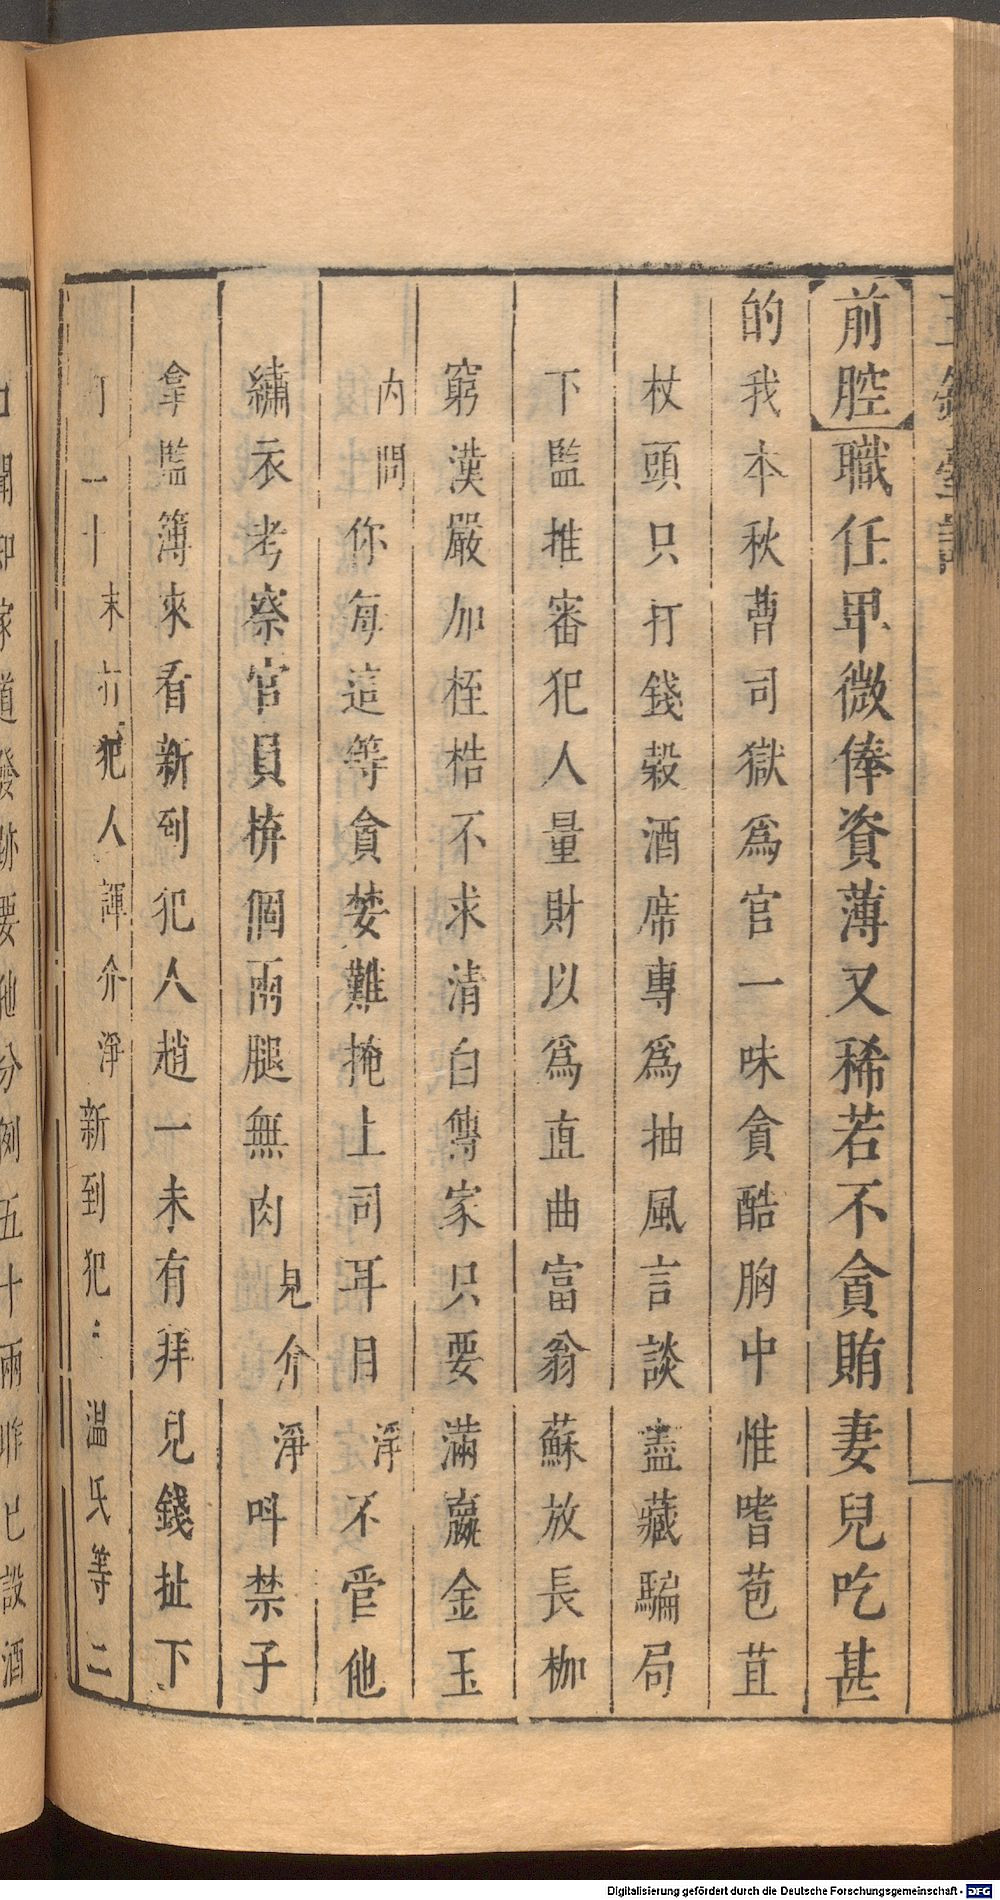 前腔職任卑微俸資薄又稀若不貪賄妻兒吃甚
的我本秋曹司獄爲官一味貪酷胸中惟嗜苞苴
杖頭只打錢穀酒席專爲抽風言談盡藏騙局
下監推審犯人量財以爲直曲富翁蘇放長枷
窮漢嚴加桎梏不求清白傳家只要滿嬴金玉
内問你每這等貪婪難掩上司耳目淨不管他
繡衣考察官員挤個兩腿無肉見介淨呌禁子
拿監簿來看新到犯人趙一未有拜見錢扯下
打一十末打犯人諢介淨新到犯二温氏等二
聞知家道發跡要他分例五十兩昨已設酒
Digitalisierung gefördert durch die Deutsche Forschungsgemeinschaft - DFG